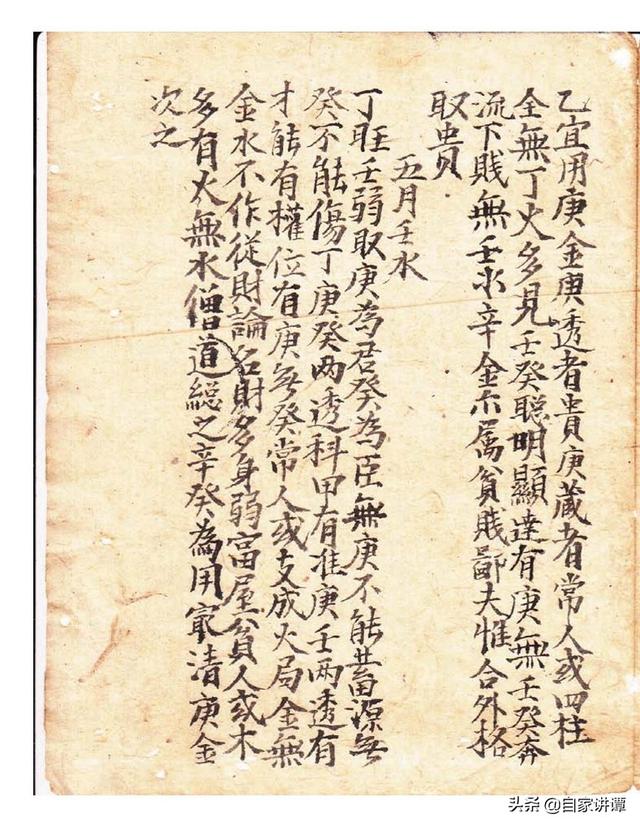 乙宜用庚金庚透者贵庚蔵者常人或四柱
全無丁火多見壬癸聪明顯達有庚無壬癸奔
流下賎無壬水辛金亦属貧賎鄙夫惟合外格
取贵
五月壬水
丁旺壬弱取庚為君癸為臣無庚不能蓄源無
癸不能傷丁庚癸两透科甲有准庚壬两透有
才能有權位有庚無癸常人或支成火局金無
金水不作従財論名財多身弱富屋貧人或木
多有火無水僧道総之辛癸為用冣清庚金
次之
头条 @自家讲谭